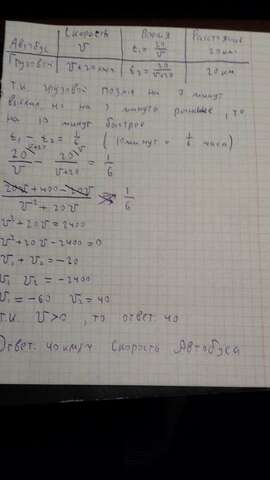 Скорость Время Расстояние
Автобус v t₁ = 20/v 20 км
Грузовой v+20 км/ч t₂ = 20/(v+20) 20 км
Т.к. грузовой позже на 7 минут
выехал, но на 3 минуты раньше, то
на 10 минут быстрее
t₁ - t₂ = 1/6 (10 минут = 1/6 часа)
20/v - 20/(v+20) = 1/6
(20v + 400 - 20v)/(v² + 20v) = 1/6
v² + 20v = 2400
v² + 20v - 2400 = 0
v₁ + v₂ = -20
v₁ v₂ = -2400
v₁ = -60 v₂ = 40
Т.к. v > 0, то ответ 40
Ответ. 40 км/ч Скорость Автобуса